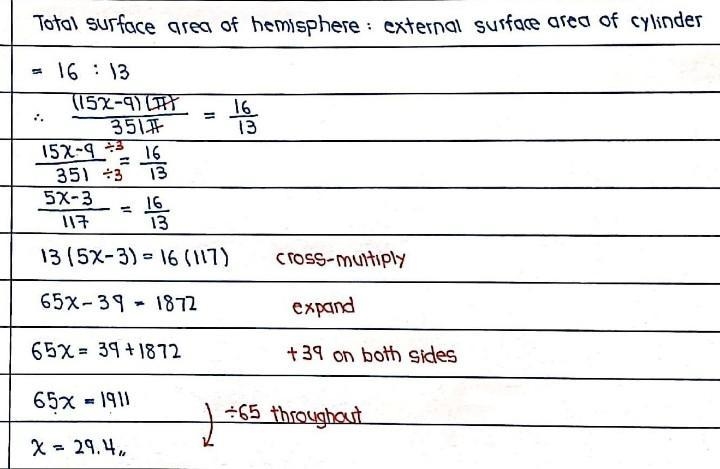 Total surface area of hemisphere : external surface area of cylinder
= 16 : 13
∴ (15x-9)(π) / 351π = 16/13
15x-9 ÷3 / 351 ÷3 = 16/13
5x-3 / 117 = 16/13
13(5x-3) = 16(117) cross-multiply
65x-39 = 1872 expand
65x = 39+1872 +39 on both sides
65x = 1911
÷65 throughout
x = 29.4,,